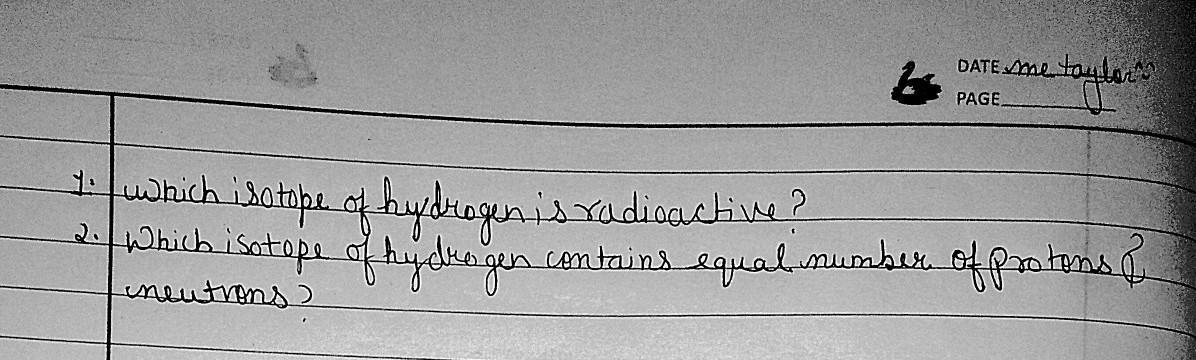 DATE me taylor
PAGE
1. Which isotope of hydrogen is radioactive?
2. Which isotope of hydrogen contains equal number of protons &
neutrons?